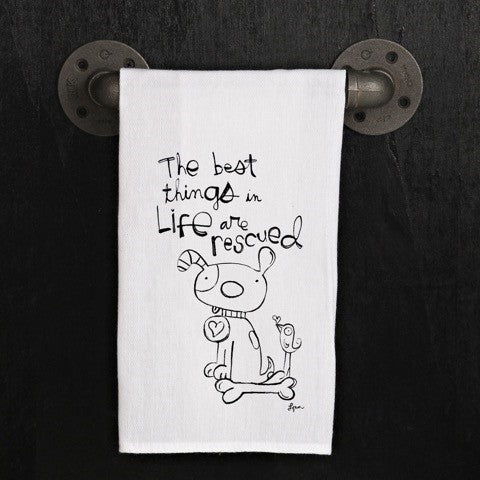 The best
things in
Life are
rescued